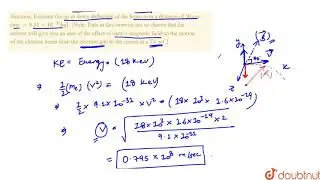 direction. Estimate the up or down deflection of the beam over a distance of 30 cm
(me = 9.11 × 10⁻³¹ kg). [Note: Data in this exercise are so chosen that the
answer will give you an idea of the effect of earth's magnetic field on the motion
of the electron beam from the electron gun to the screen in a
KE = Energy = (18 KeV)
⇒ 1/2 (me) (v²) = (18 KeV)
⇒ 1/2 × 9.1 × 10⁻³¹ × v² = (18 × 10³ × 1.6 × 10⁻¹⁹)
⇒ v = √(18 × 10³ × 1.6 × 10⁻¹⁹ × 2 / 9.1 × 10⁻³¹)
⇒ 0.795 × 10⁸ m/sec
y
x
z
doubtnut